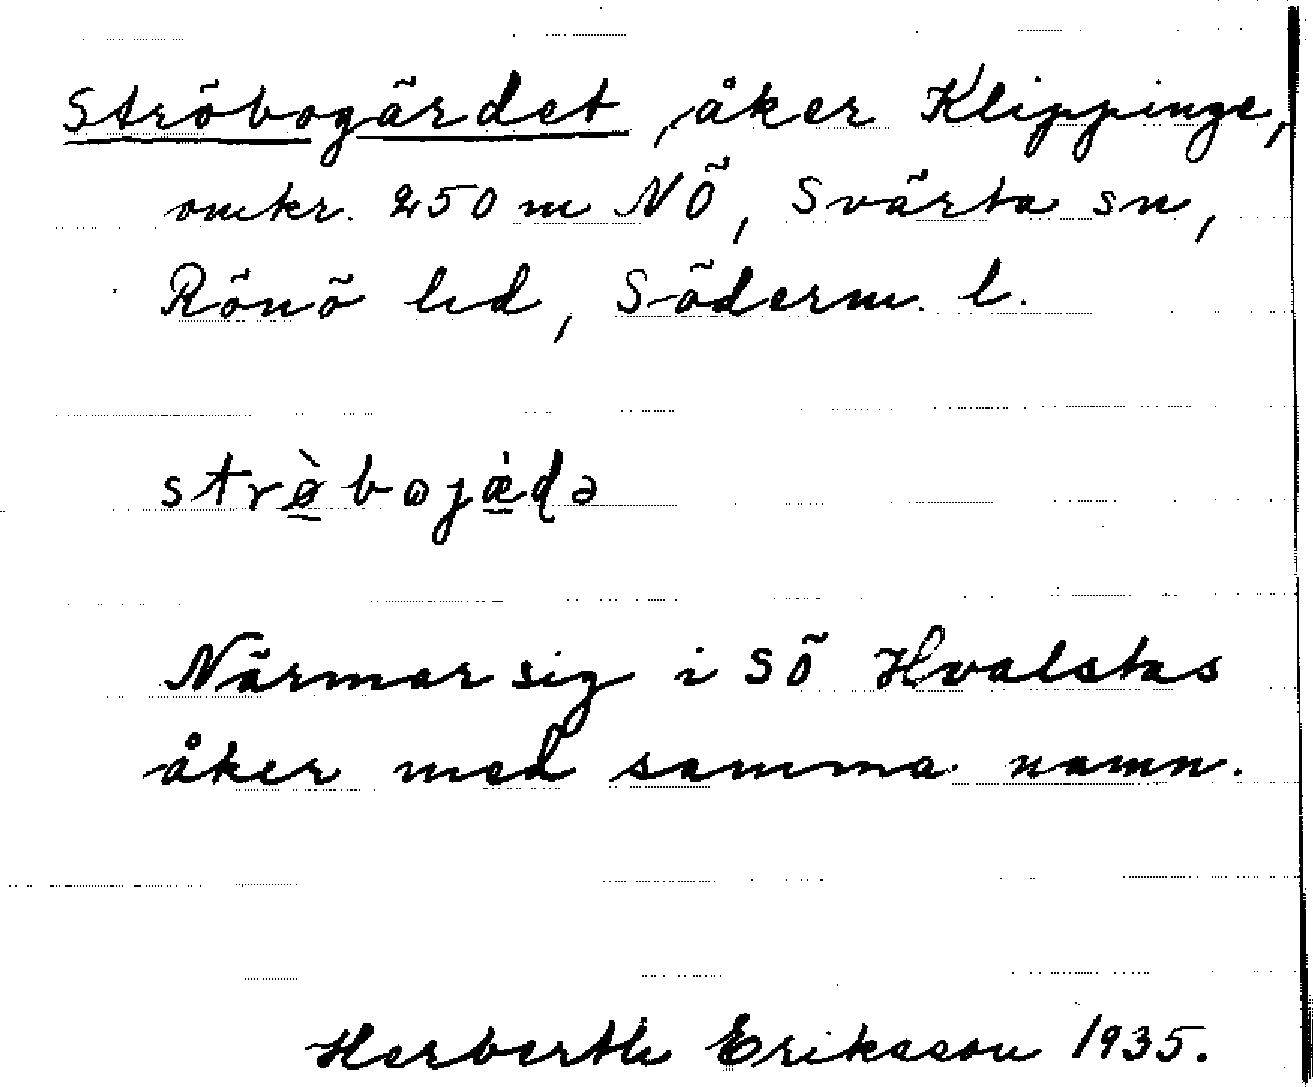 Ströbogärdet, åker Klippinge,
omkr. 250 m NÖ, Svärta sn,
Rönö hd, Söderm. l.
strø̀bojǽdə
Närmar sig i SÖ Hvalstas
åker med samma namn.
Herberth Eriksson 1935.